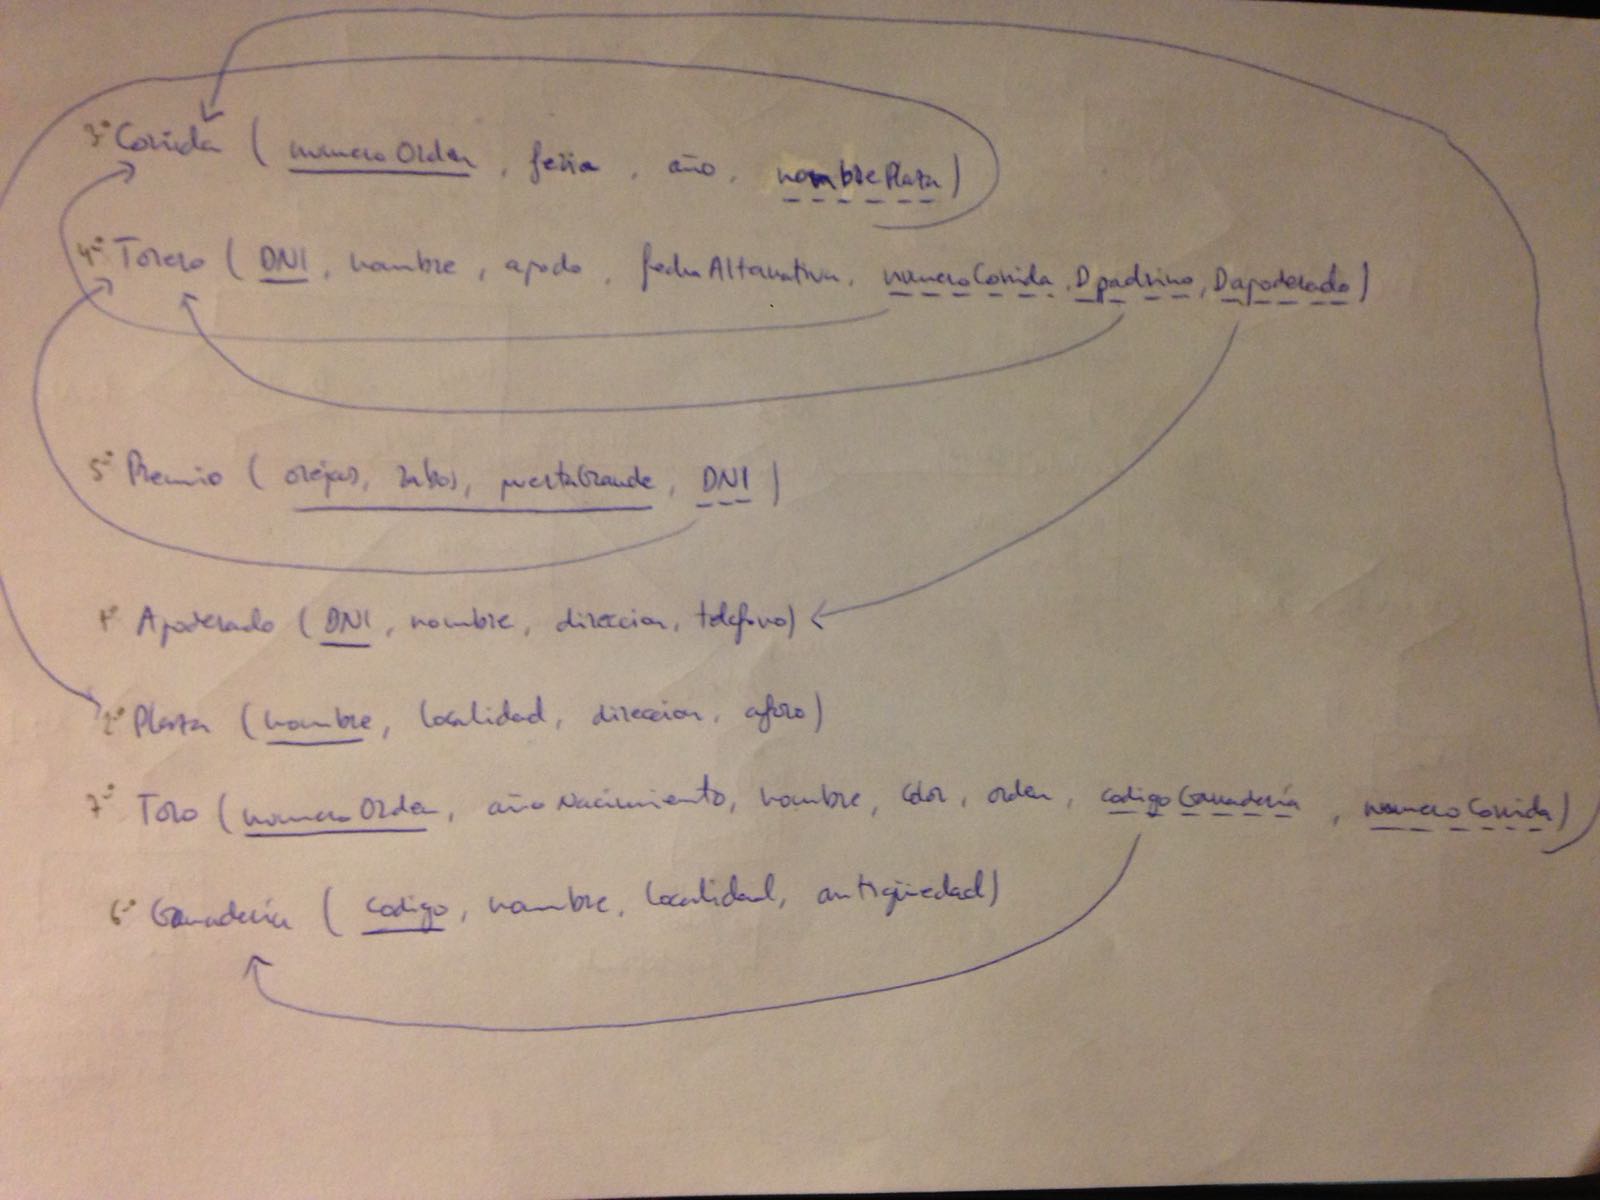 3º Corrida ( numeroOrden , feria , año , nombrePlaza )
4º Torero ( DNI , nombre , apodo , fechaAlternativa , numeroCorrida , Dpadrino , Dapoderado )
5º Premio ( orejas , rabos , puertaGrande , DNI )
1º Apoderado ( DNI , nombre , direccion , telefono )
2º Plaza ( nombre , localidad , direccion , aforo )
7º Toro ( numeroOrden , añoNacimiento , nombre , color , orden , codigoGanadería , numeroCorrida )
6º Ganadería ( codigo , nombre , localidad , antigüedad )